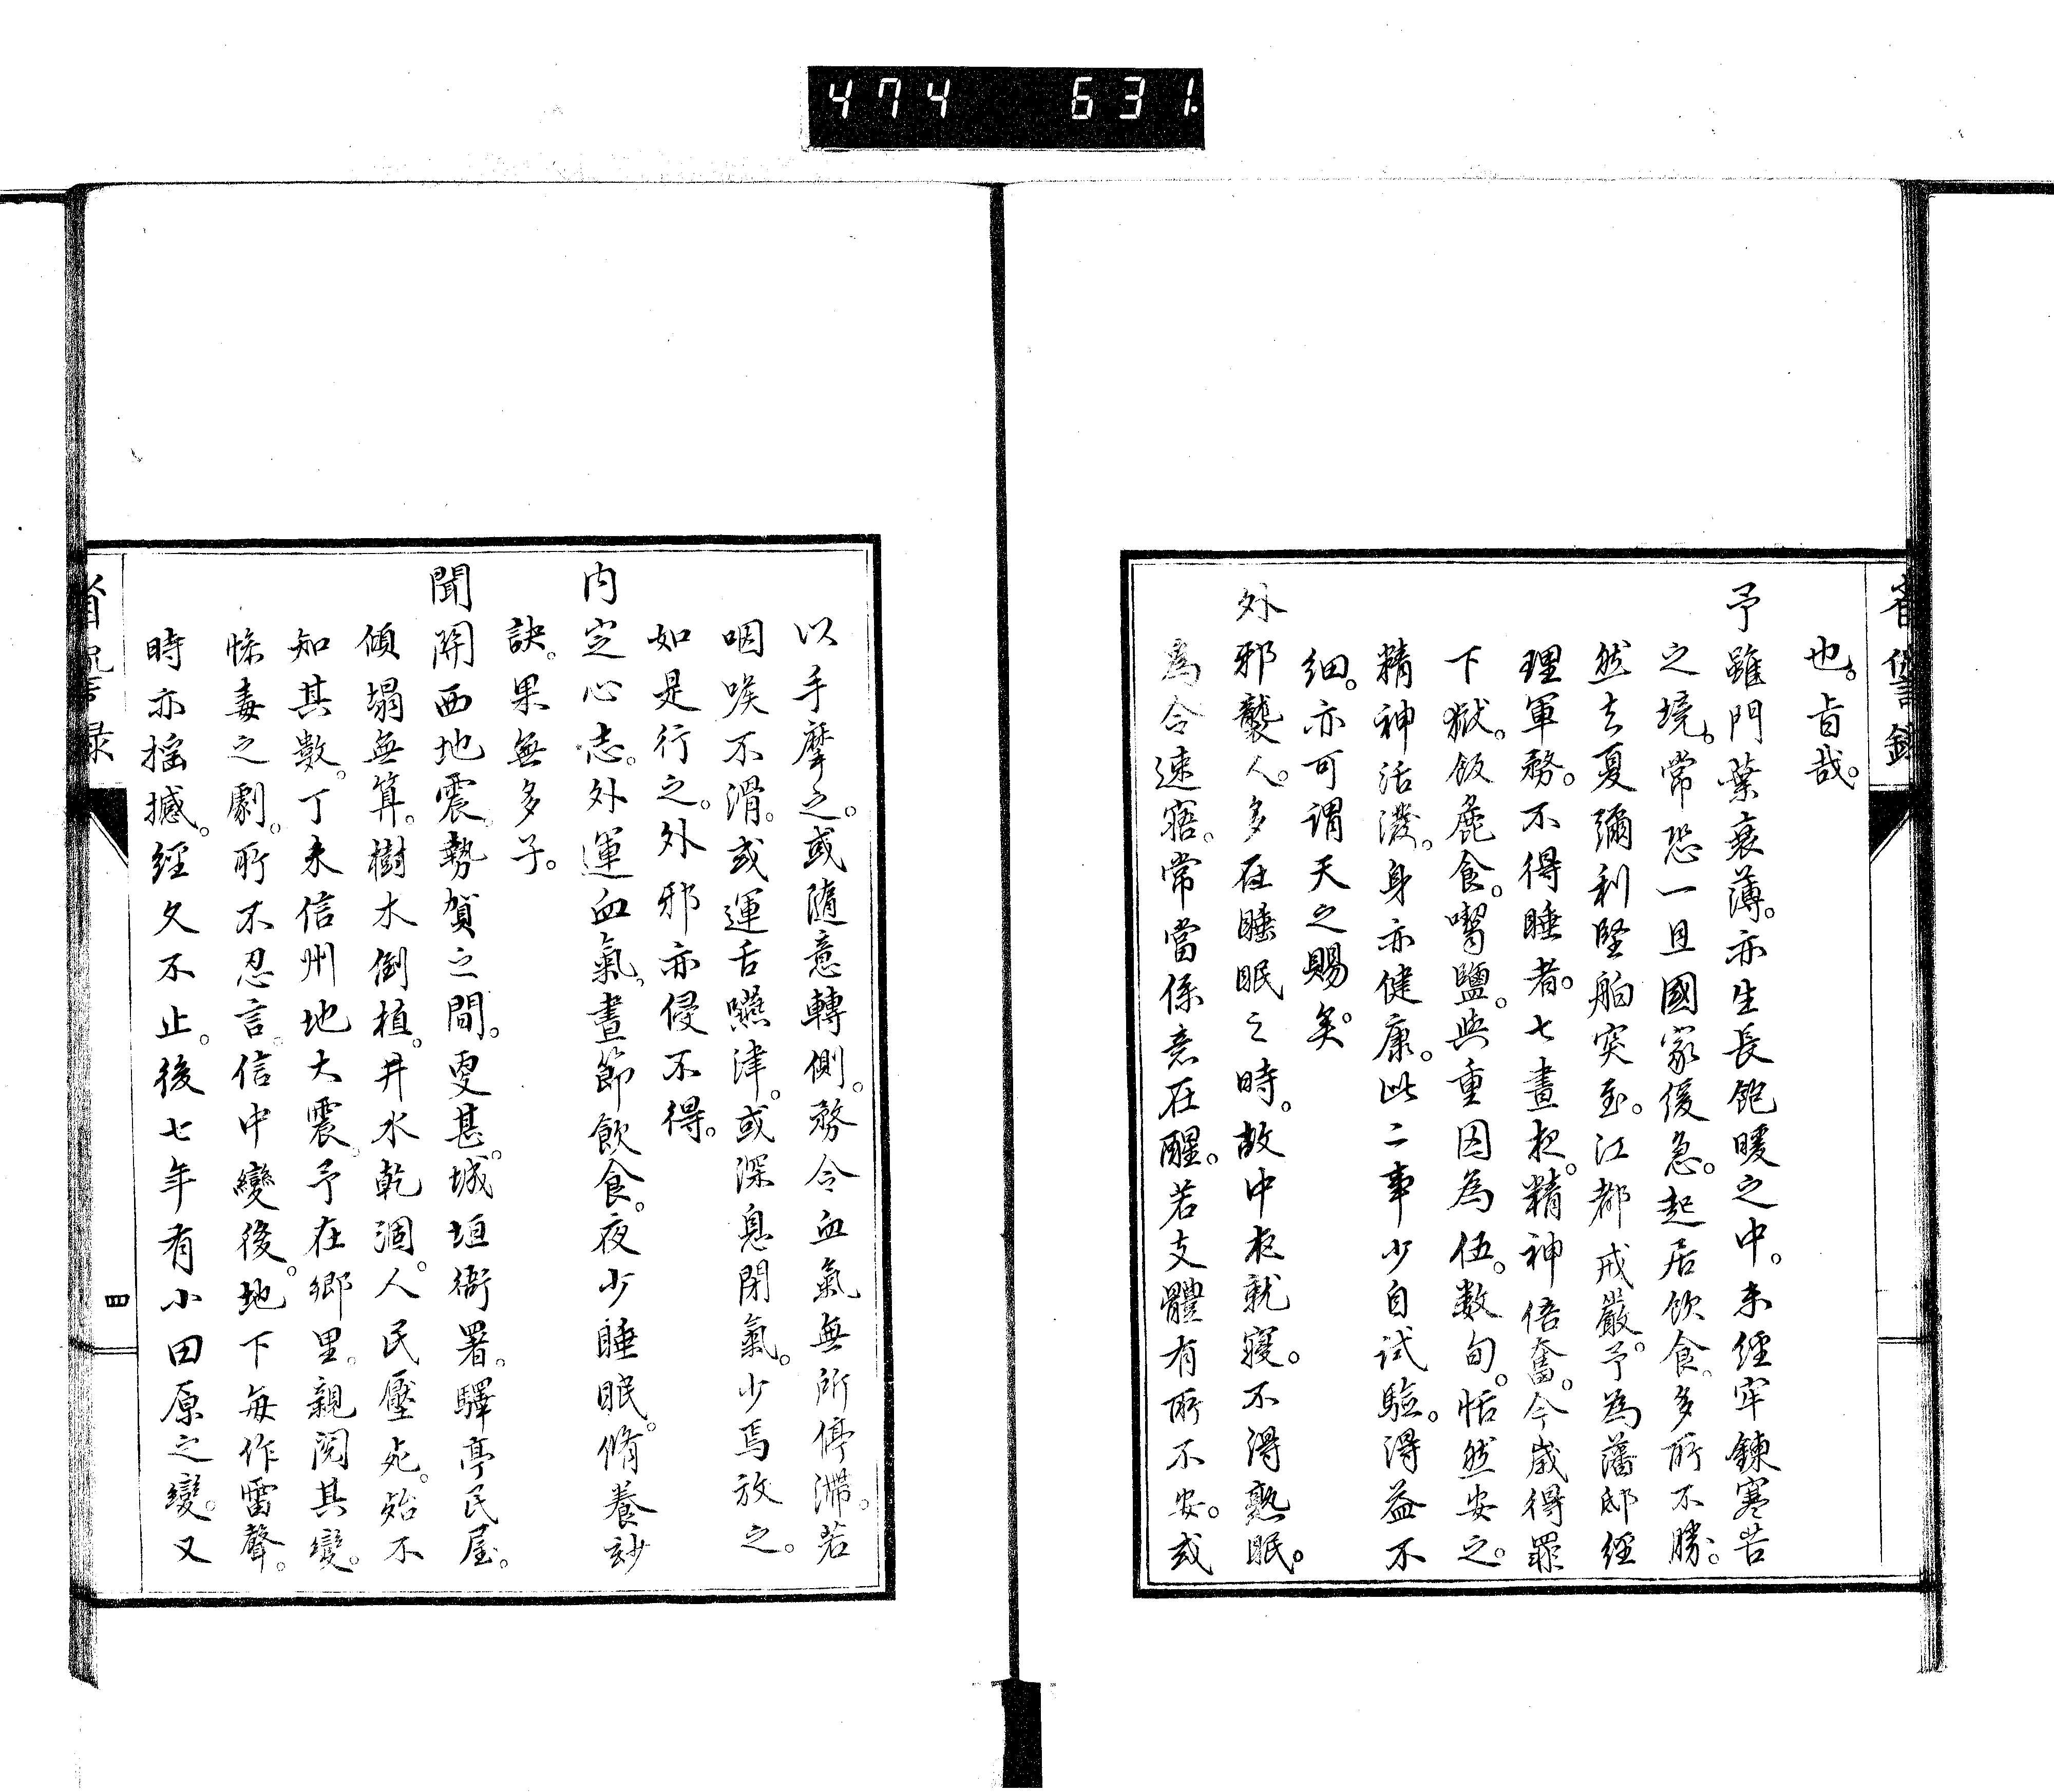 474 631
省諐錄
也。旨哉。
予雖門葉衰薄。亦生長飽暖之中。未經牢鍊寒苦
之境。常恐一旦國家緩急。起居飲食。多所不勝。
然去夏彌利堅舶突至。江都戒嚴。予為藩邸經
理軍務。不得睡者。七晝夜。精神倍奮。今歲得罪
下獄。飯麁食。嚙鹽。與重囚為伍。數旬。恬然安之。
精神活潑。身亦健康。此二事少自試驗。得益不
細。亦可謂天之賜矣。
外邪襲人。多在睡眠之時。故中夜就寢。不得熟眠。
為令速寤。常當係意在醒。若支體有所不安。或
以手摩之。或隨意轉側。務令血氣無所停滯。若
咽喉不滑。或運舌嚥津。或深息閉氣。少焉放之。
如是行之。外邪亦侵不得。
內定心志。外運血氣。晝節飲食。夜少睡眠。脩養玅
訣。果無多子。
聞關西地震。勢賀之間。更甚。城垣衙署。驛亭民屋。
傾塌無算。樹木倒植。井水乾涸。人民壓死。殆不
知其數。丁未信州地大震。予在鄉里。親閱其變。
慘毒之劇。所不忍言。信中變後。地下每作雷聲。
時亦搖撼。經久不止。後七年有小田原之變。又
省諐錄
四